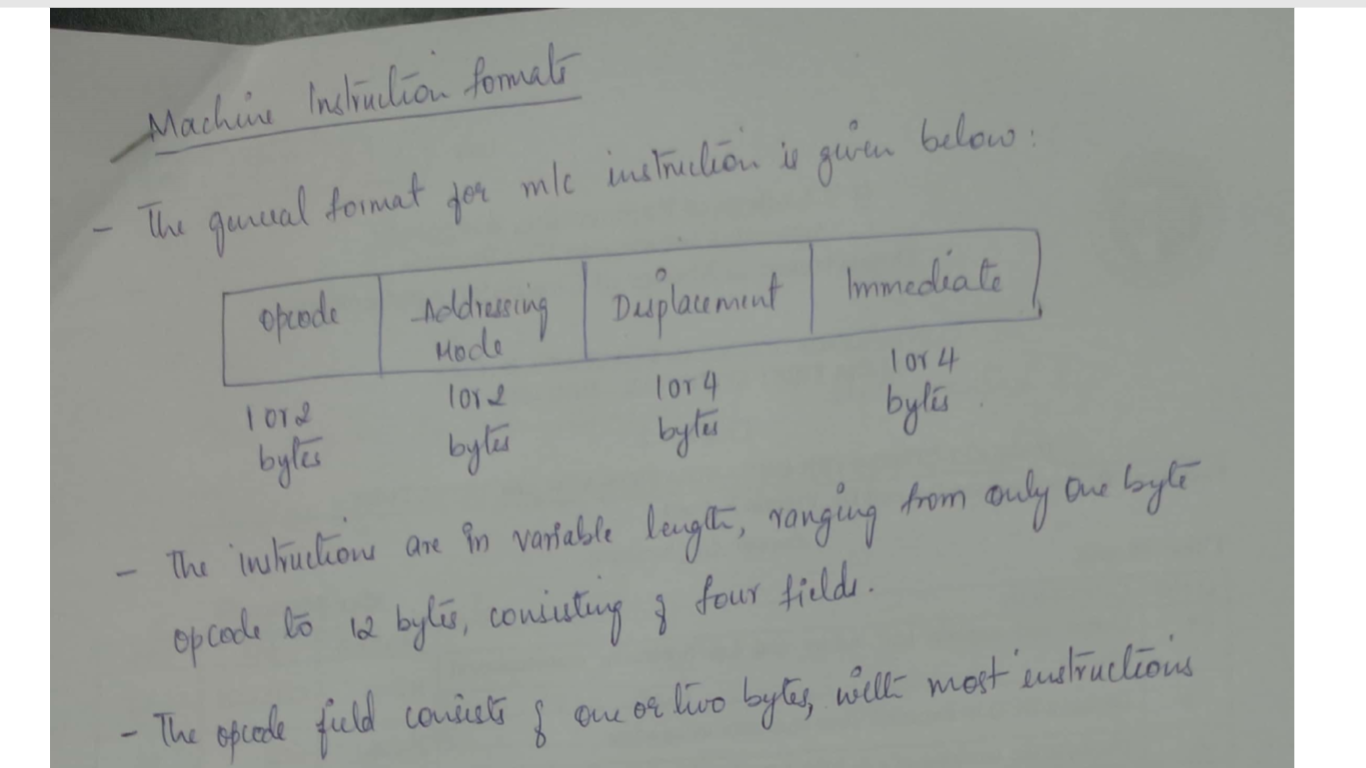 Machine Instruction formats
- The general format for m/c instruction is given below:
Opcode | Addressing Mode | Displacement | Immediate
1 or 2 bytes | 1 or 2 bytes | 1 or 4 bytes | 1 or 4 bytes
- The instructions are in variable length, ranging from only one byte
opcode to 12 bytes, consisting of four fields.
- The opcode field consists of one or two bytes, with most instructions